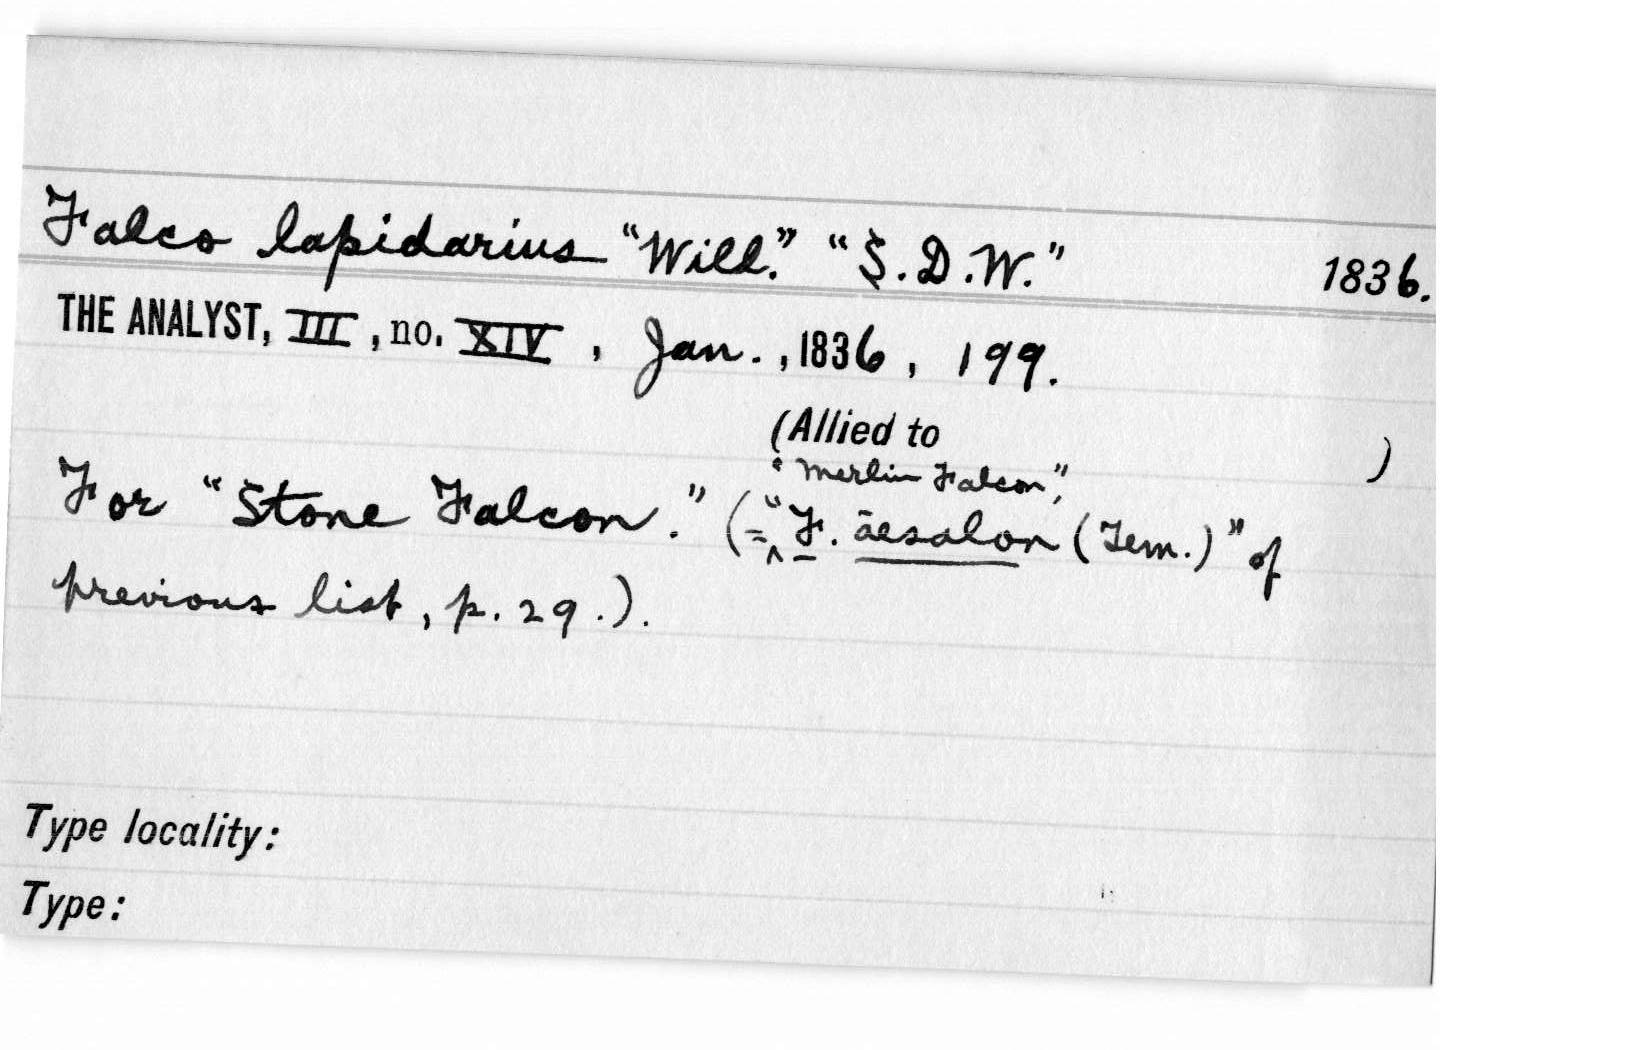 Falco lapidarius "Will." "S.D.W." 1836.
THE ANALYST, III, no. XIV, Jan., 1836, 199.
(Allied to )
"Merlin Falcon",
For "Stone Falcon." (= "F. äesalon (Tem.)" of
previous list, p. 29.).
Type locality:
Type: